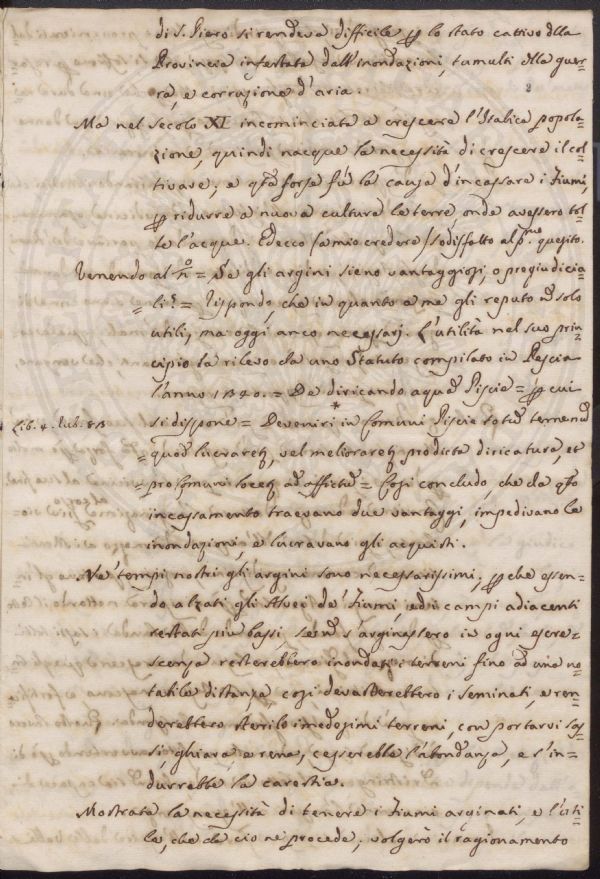 di S. Piero si rendeva difficile p lo stato cattivo dlla
Provincia infestata dall'inondazioni, tumulti dlla guer=
ra, e corruzione d'aria.
Ma nel secolo XI incominciata a crescere l'Italica popola=
zione, quindi nacque la necessità di crescere il col=
tivare; e qto forse fù la causa d'incassare i Fiumi,
p ridurre a nuova culture le terre onde avessero tol=
te l'acque. Edecco (a mio credere) sodisfatto al pmo quesito.
Venendo al = Se gli argini sieno vantaggiosi, o progiudicia=
=li? = Rispondo, che in quanto a me gli reputo solo
utili, ma oggi anco necessarj. L'utilità nel suo prin=
cipio la rilevo da uno Statuto compilato in Pescia
l'anno 1340. = De diricando aqua Piscie = p cui
Lib. 4. Rub. 83
si dispone = Deveniri in Comuni Piscie totum terrenum
=quod lucraret, vel melioraret pro dicta diricatura, et
=pro Comuni ad affictum = Cosi concludo, che da qto
incassamento traevano due vantaggi, impedivano le
inondazioni, e lucravano gli acquisti.
Ne' tempi nostri gli argini sono necessarissimi; p che essen=
do alzati gli Alvei de' Fiumi, ed i campi adiacenti
restati più bassi, se s'arginassero in ogni escre=
scenza resterebbero inondati i terreni fino ad una no=
tabile distanza cosi devasterebbero i seminati, e ren=
derebbero sterile i medesimi terreni, con portarvi sas=
si, ghiara, e rena, cesserebbe l'abondanza, e s'in=
durrebbe la carestia.
Mostrata la necessità di tenere i Fiumi arginati, e l'uti=
le, che da cio ne procede; volgerò il ragionamento